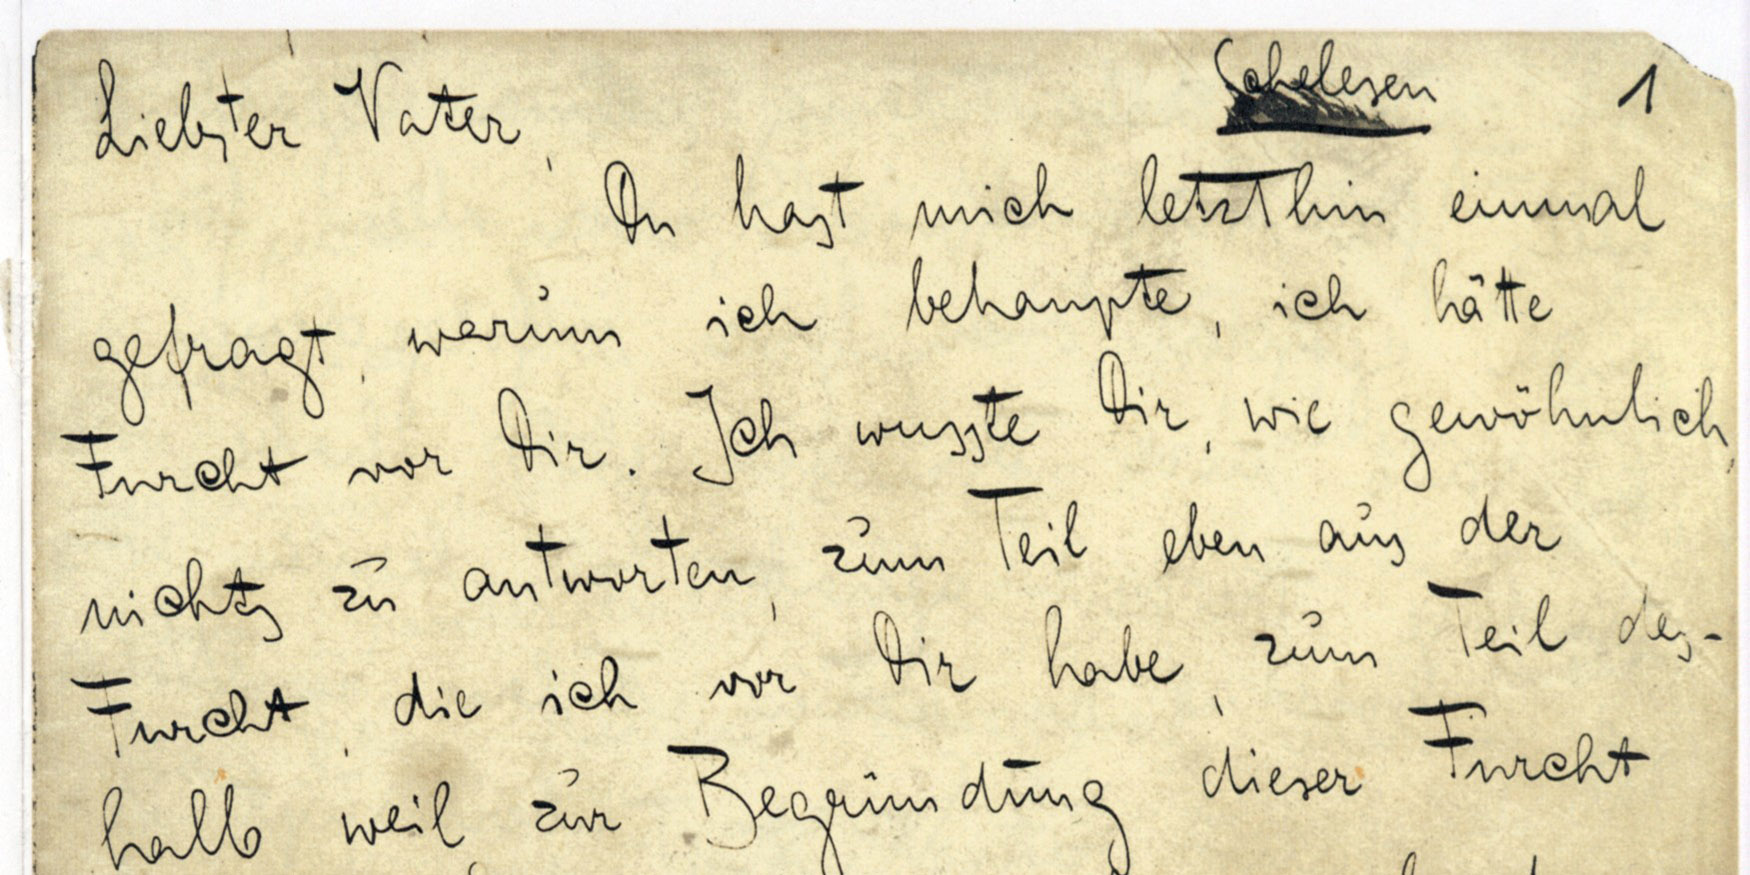 Schelesen 1
Liebster Vater,
Du hast mich letzthin einmal
gefragt, warum ich behaupte, ich hätte
Furcht vor Dir. Ich wusste Dir, wie gewöhnlich,
nichts zu antworten, zum Teil eben aus der
Furcht, die ich vor Dir habe, zum Teil des-
halb weil zur Begründung dieser Furcht